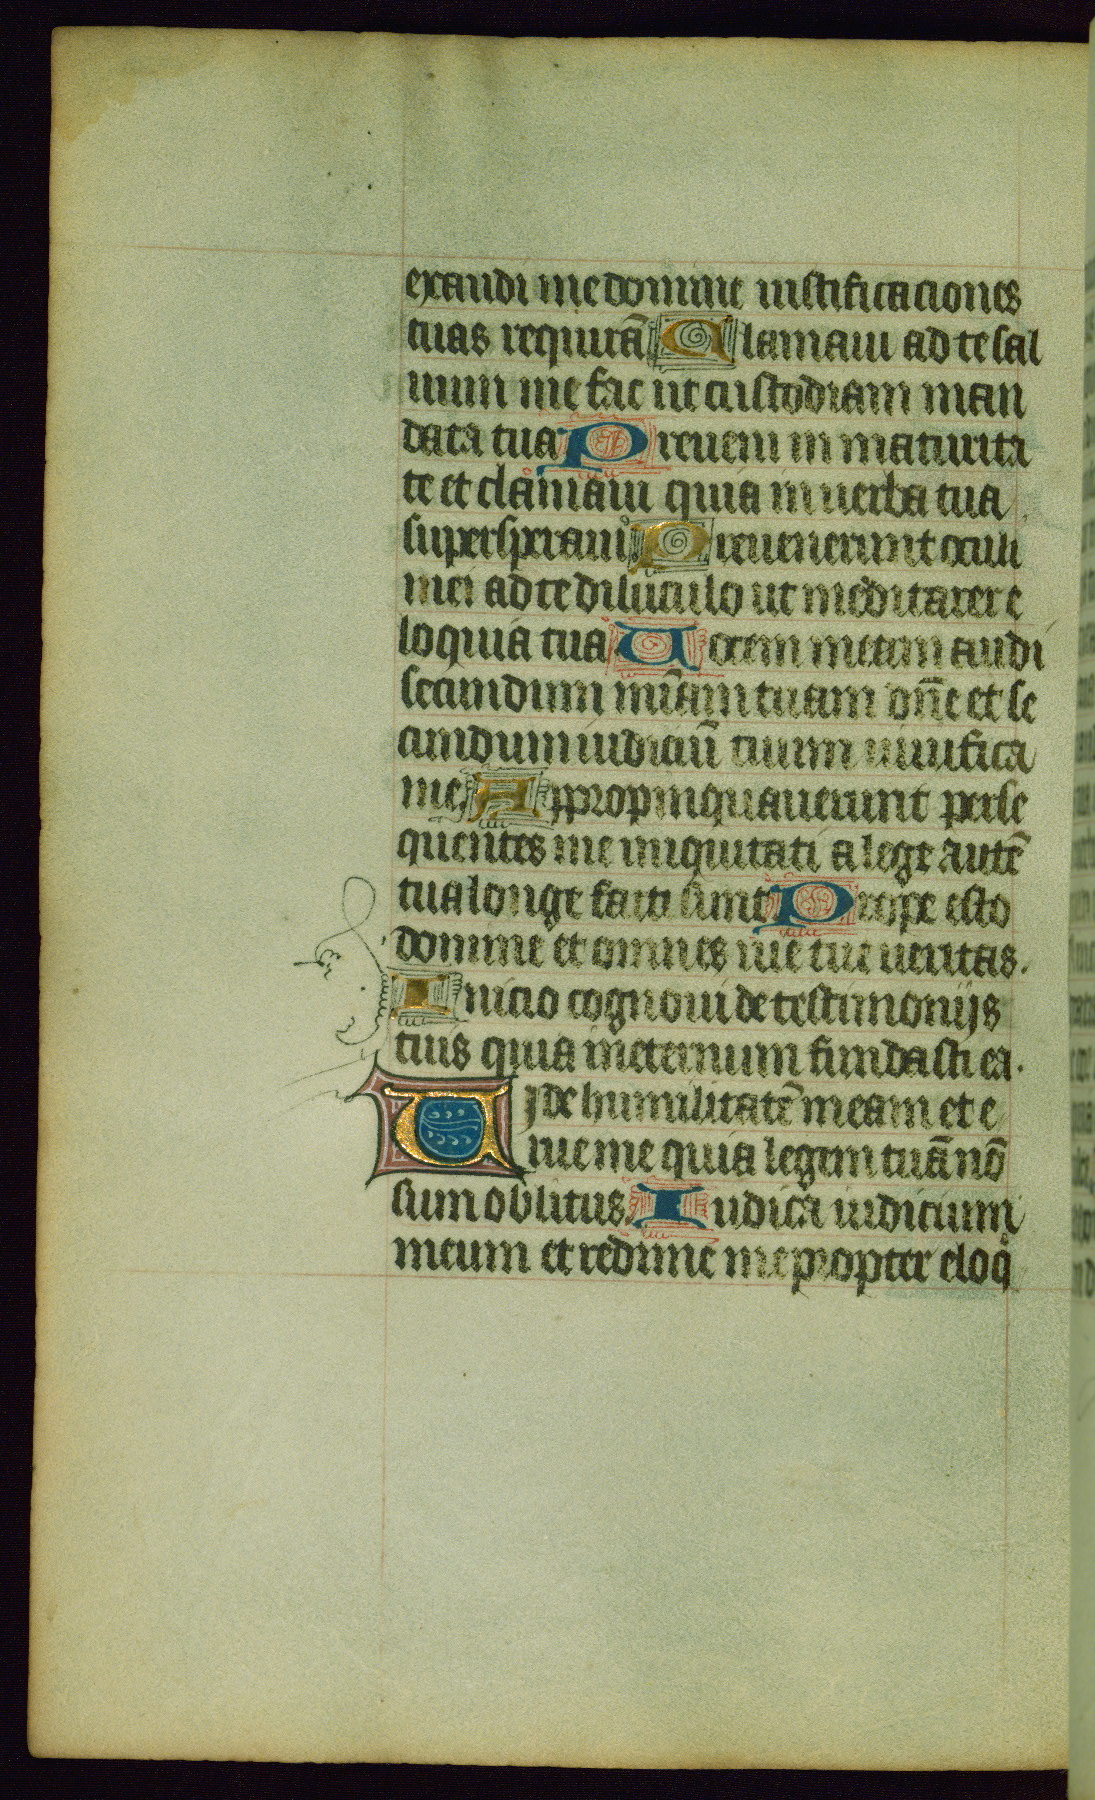 exaudi me domine iustificaciones
tuas requirā Clamaui ad te sal
uum me fac ut custodiam man
data tua Preueni in maturita
te et clamaui quia in uerba tua
supersperaui Preuenerunt oculi
mei ad te diluculo ut meditarer e
loquia tua Uocem meam audi
secundum mīam tuam dn̄e et se
cundum iudiciū tuum uiuifica
me Appropinquauerunt perse
quentes me iniquitati a lege autē
tua longe facti sunt Prope esto
domine et omnes uie tue ueritas.
Inicio cognoui de testimonijs
tuis quia in eternum fundasti ea.
Uide humilitatē meam et e
rue me quia legem tuā nō
sum oblitus. Iudica iudicium
meum et redime me propter eloq̄